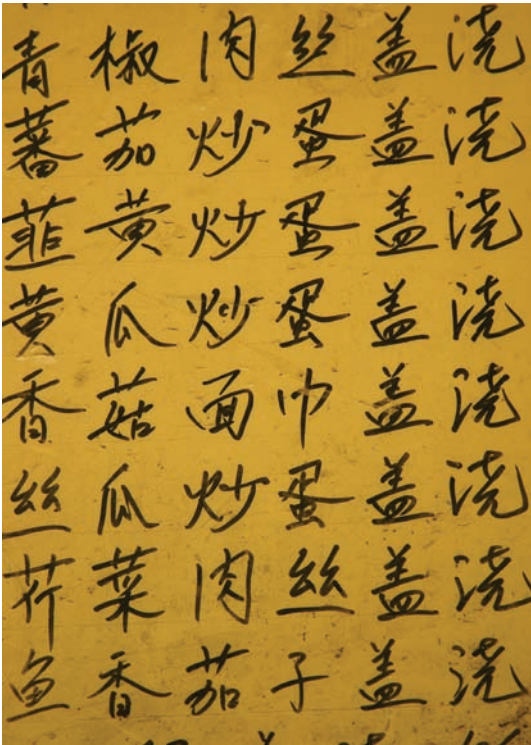 青椒肉丝盖浇
蕃茄炒蛋盖浇
韮黄炒蛋盖浇
黄瓜炒蛋盖浇
香菇面巾盖浇
丝瓜炒蛋盖浇
芹菜肉丝盖浇
鱼香茄子盖浇